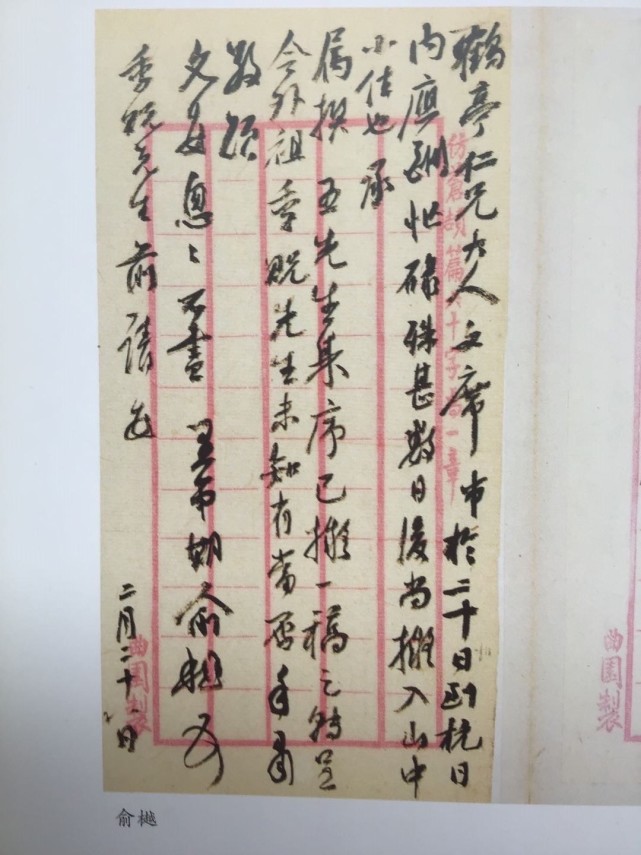 鶴亭仁兄大人文席弟於二十日到杭日
內應酬忙碌殊甚數日後尚擬入山中
小住也承
屬撰 五先生集序已擬一稿乞轉呈
令外祖季貺先生未知有當否手肅
敬頌
文安怱〻不盡 弟期俞樾
季貺先生前請安
二月二十日
仿蒼頡篇六十字為一章
曲園製
曲園製
俞樾